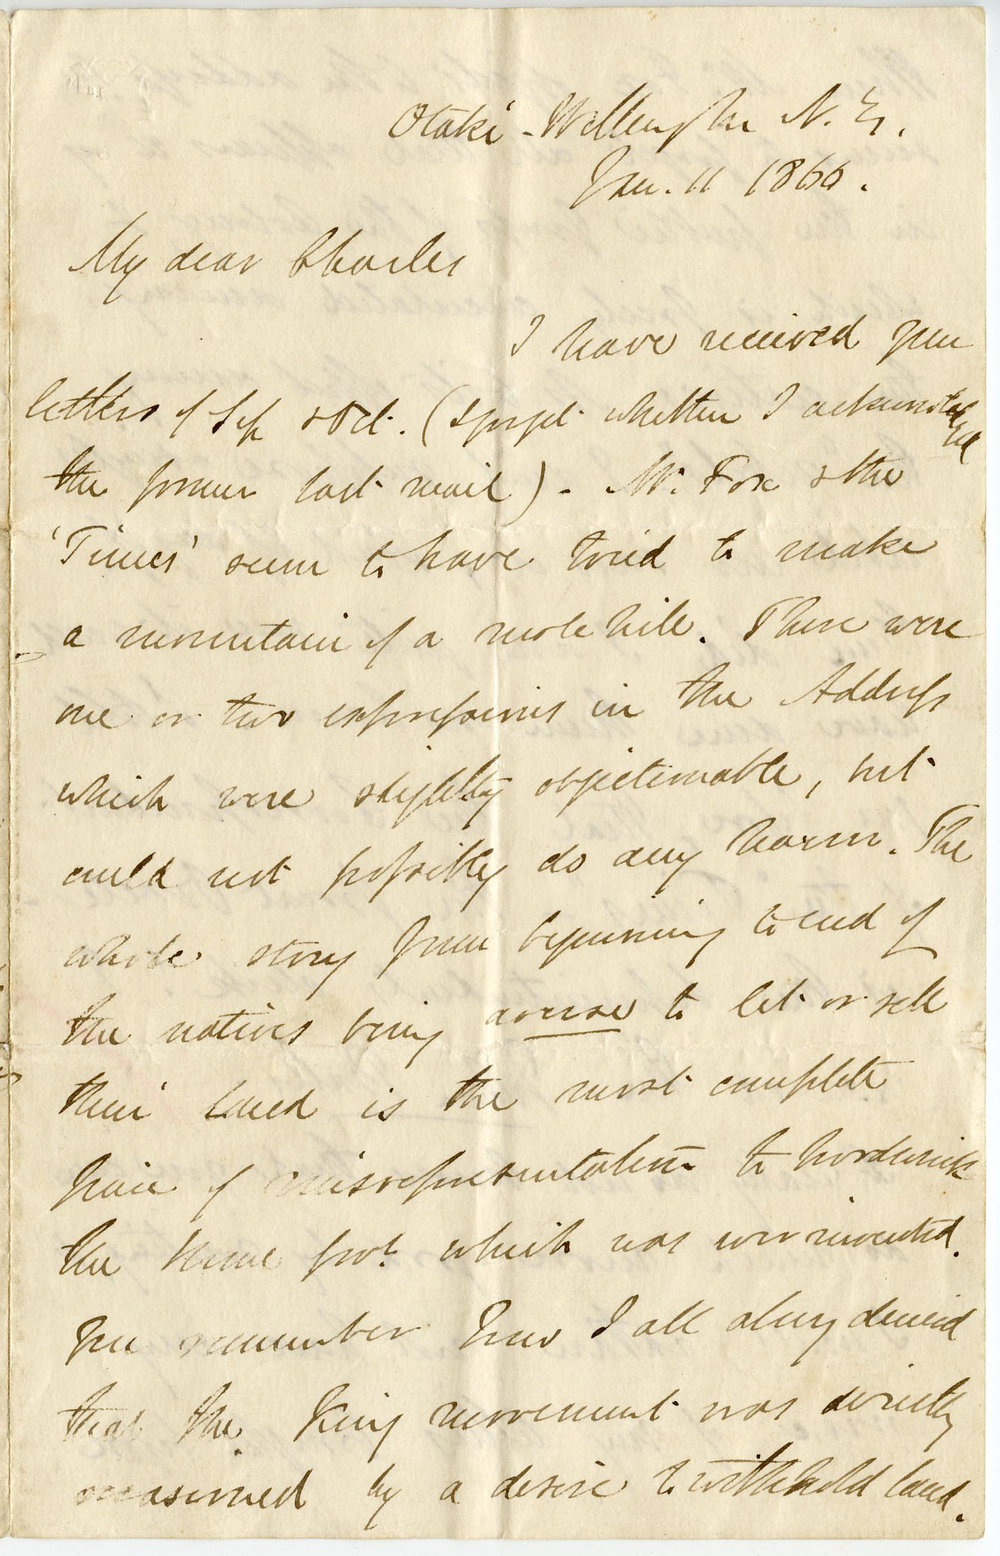 Otaki - Wellington N. Z.
Jan. 11 1866.
My dear Charles
I have received your
letters of Sep & Oct. (I forget whether I acknowledged
the former last mail) - Mr. Fox & the
'Times' seem to have tried to make
a mountain of a mole hill. There were
one or two expressions in the Address
which were slightly objectionable, but
could not possibly do any harm. The
whole story from beginning to end of
the natives being averse to let or sell
their land is the most complete
piece of misrepresentation to hoodwink
the Home Govt. which was ever invented.
You remember how I all along denied
that the King movement was directly
occasioned by a desire to withhold land.